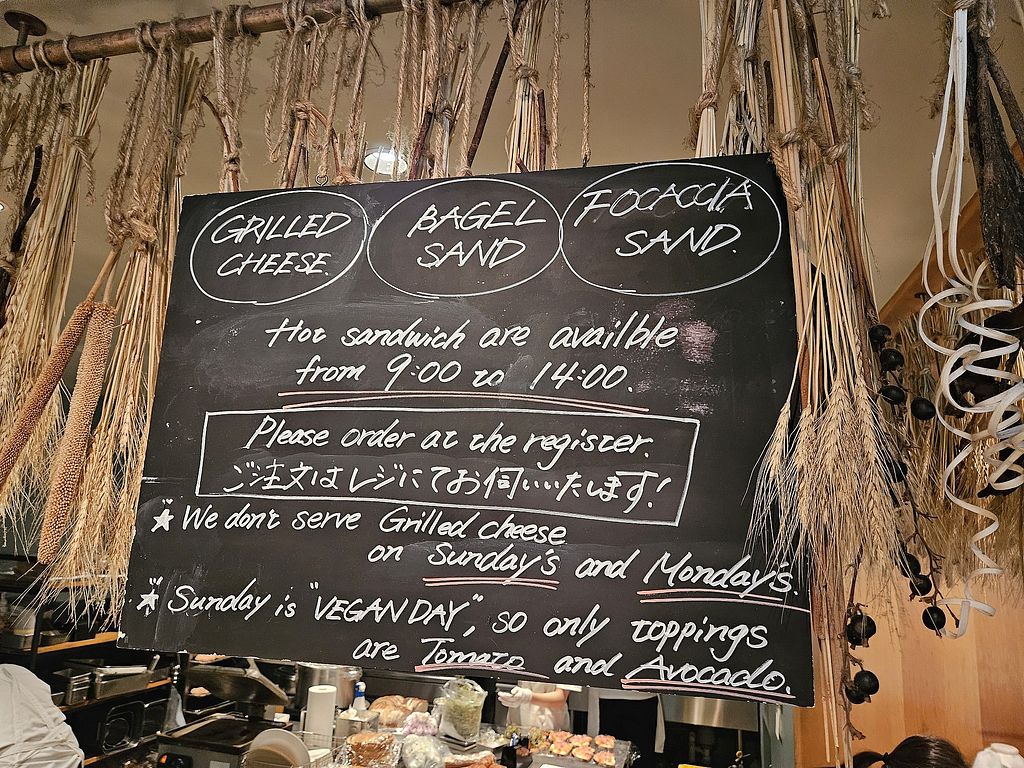 GRILLED
CHEESE.
BAGEL
SAND
FOCACCIA
SAND.
Hot sandwich are availble
from 9:00 to 14:00.
Please order at the register.
ご注文はレジにてお伺いいたします!
☆ We don't serve Grilled cheese
on Sunday's and Monday's.
☆ Sunday is "VEGAN DAY", so only toppings
are Tomato and Avocado.